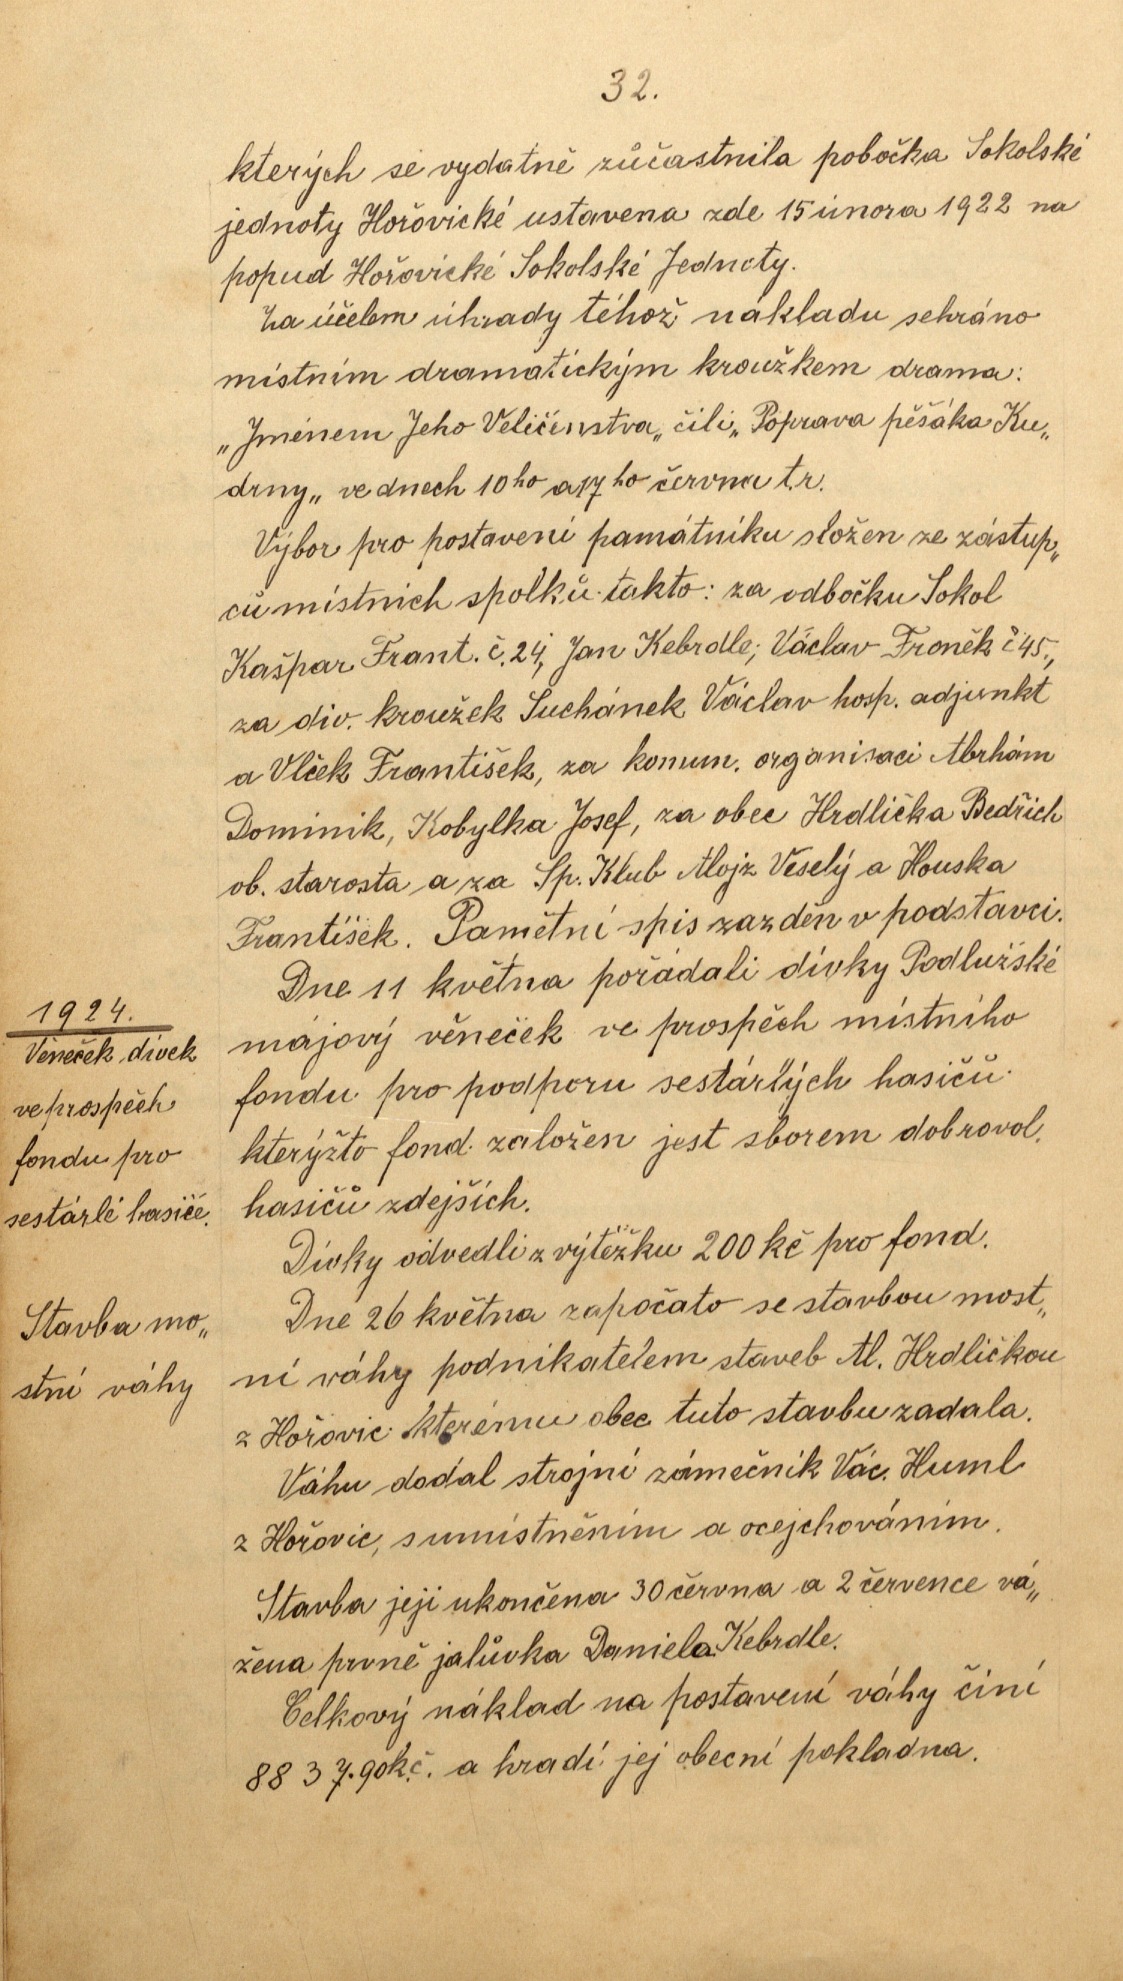 32.
kterých se vydatně zůčastnila pobočka Sokolské
jednoty Hořovické ustavena zde 15 února 1922 na
popud Hořovické Sokolské Jednoty.
Za účelem úhrady téhož nákladu sehráno
místním dramatickým kroužkem drama:
„Jménem Jeho Veličenstva„ čili „Poprava pěšáka Ku„
drny„ ve dnech 10ho a 17ho června t.r.
Výbor pro postavení památníku složen ze zástup„
ců místních spolků takto: za odbočku Sokol
Kašpar Frant. č. 24, Jan Kebrdle; Václav Froněk č 45.,
za div. kroužek Suchánek Václav hosp. adjunkt
a Vlček František, za komun. organisaci Abrhám
Dominik, Kobylka Josef, za obec Hrdlička Bedřich
ob. starosta a za Sp. Klub Alojz Veselý a Houska
František. Pamětní spis zazděn v podstavci.
1924.
Věneček dívek
ve prospěch
fondu pro
sestárlé hasiče.
Dne 11 května pořádali dívky Podlužské
májový věneček ve prospěch místního
fondu pro podporu sestárlých hasičů
kterýžto fond založen jest sborem dobrovol.
hasičů zdejších.
Dívky odvedli z výtěžku 200 kč pro fond.
Stavba mo„
stní váhy
Dne 26 května započato se stavbou most„
ní váhy podnikatelem staveb Al. Hrdličkou
z Hořovic kterému obec tuto stavbu zadala.
Váhu dodal strojní zámečník Vác. Huml
z Hořovic, s umístněním a ocejchováním.
Stavba její ukončena 30 června a 2 července vá„
žena prvně jalůvka Daniela Kebrdle.
Celkový náklad na postavení váhy činí
8837.90 kč. a hradí jej obecní pokladna.